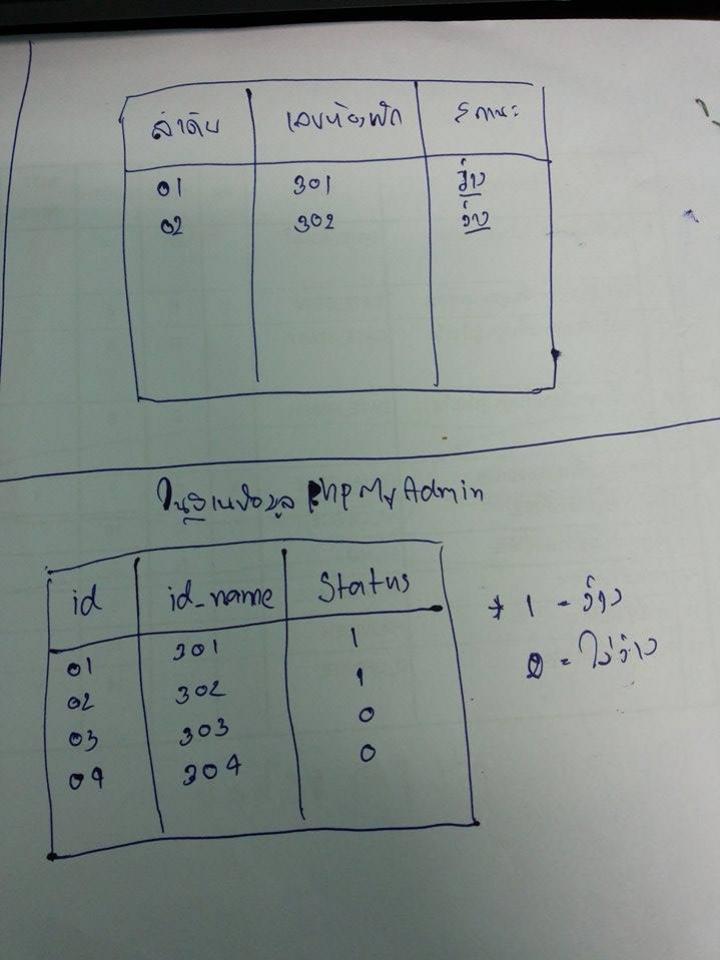 ลำดับ เลขห้องพัก สถานะ
01 301 ว่าง
02 302 ว่าง
ในฐานข้อมูล PhpMyAdmin
id id_name Status
01 301 1
02 302 1
03 303 0
04 304 0
* 1 = ว่าง
0 = ไม่ว่าง